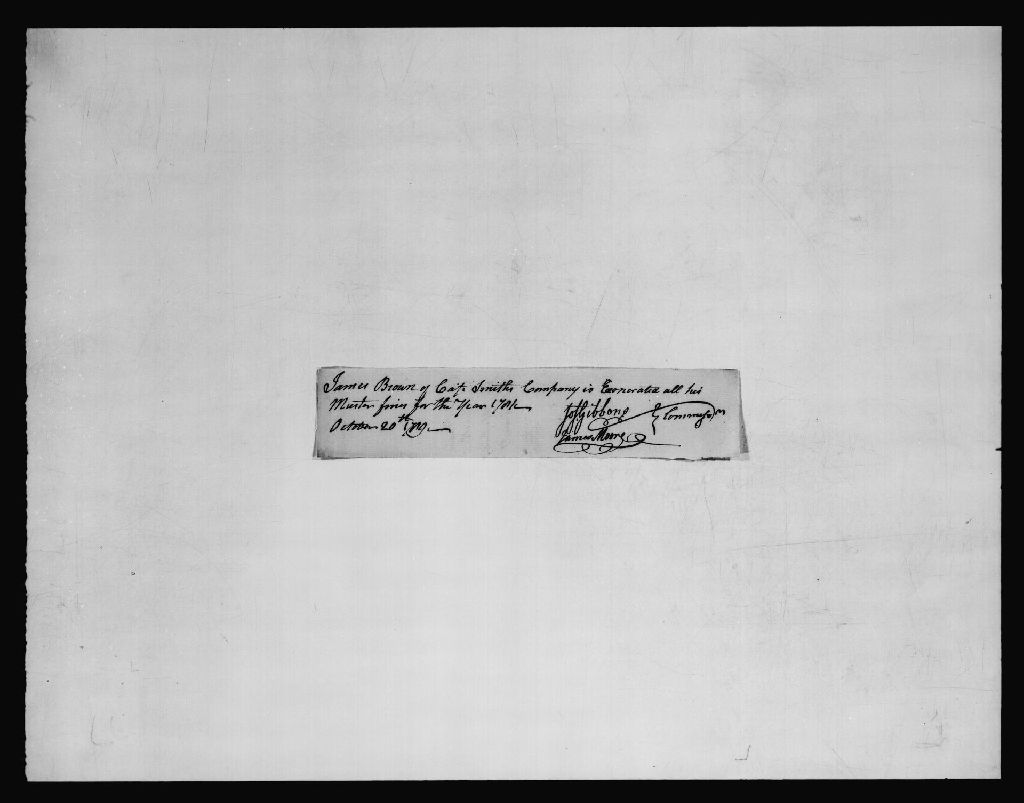 James Brown of Capt Smiths Company is Exonerated all his
Muster fines for the Year 1781
October 20th
Jos Gibbons
James Moore